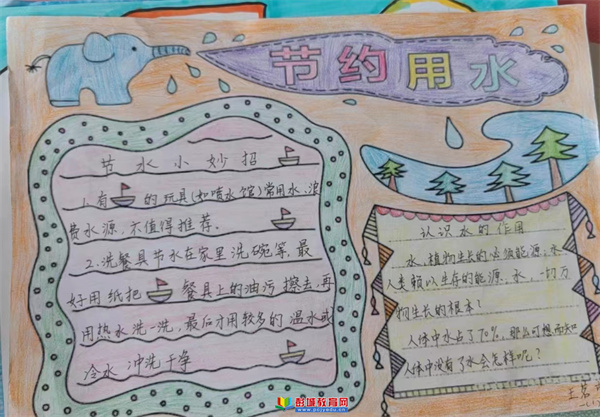 节约用水
节水小妙招
1.有的玩具(如喷水馆)常用水、浪
费水源,不值得推荐.
2.洗餐具节水在家里洗碗等,最
好用纸把餐具上的油污擦去,再
用热水洗一洗,最后才用较多的温水或
冷水冲洗干净
认识水的作用
水,植物生长的必须能源;水
人类赖以生存的能源,水,一切万
物生长的根本?
人体中水占了70%,那么可想而知
人体中没有了水会怎样呢?
彭城教育网
www.pcjyedu.cn